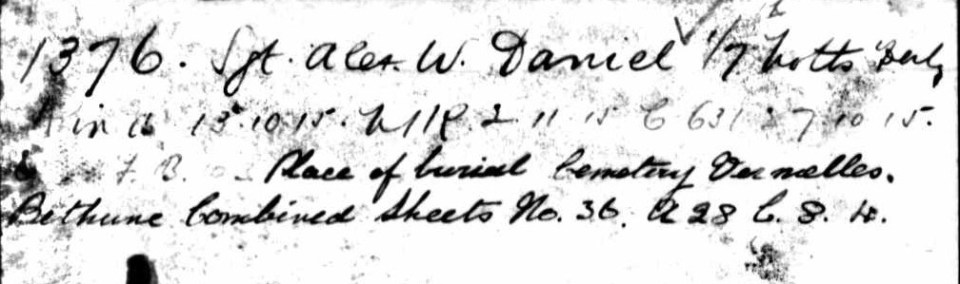 1376. Sgt. Alex. W. Daniel 1/7 Notts Derby
in 13.10.15. 2 11 15 C 631 7 10 15.
F. B. Place of burial Cemetery Vermelles.
Bethune Combined Sheets No. 36. A 28 C. 8. 4.